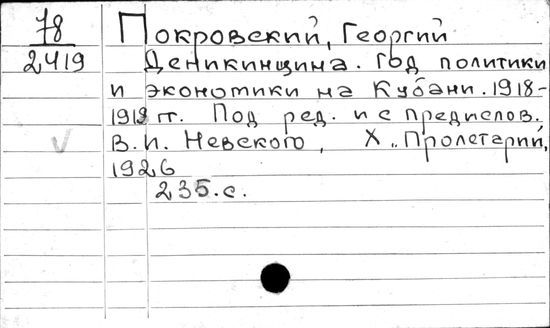 78
2419
Покровский, Георгий
Деникинщина. Год политики
и экономики на Кубани. 1918-
1919 гг. Под ред. и с предислов.
В.И. Невского, Х „Пролетарий,
1926
235.с.